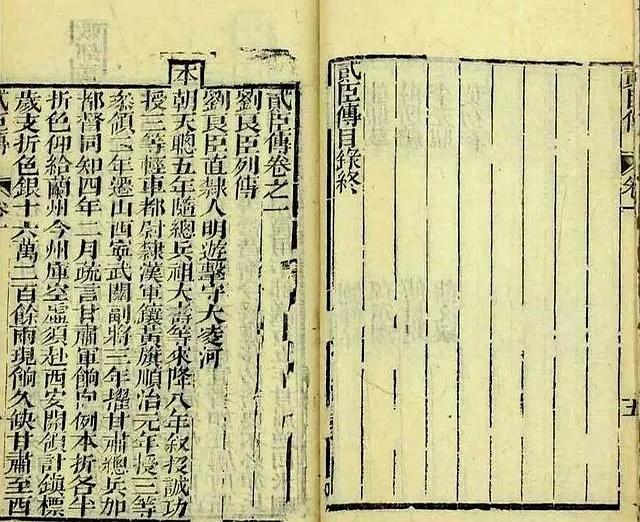 貳臣傳
卷一
五
貳臣傳目錄終
貳臣傳卷之一
劉良臣列傳
劉良臣直隸人明遊擊守大凌河
本朝天聰五年隨總兵祖大壽等來降八年叙投誠功
授三等輕車都尉隸漢軍鑲黃旗順治元年授三等
叅領二年遷山西寧武關副將三年擢甘肅總兵加
都督同知四年二月疏言甘肅軍餉向例本折各半
折色仰給蘭州今州庫空虛須赴西安開領計鎮標
歲支折色銀十六萬二百餘兩現餉久缺甘肅至西
貳臣傳
卷一